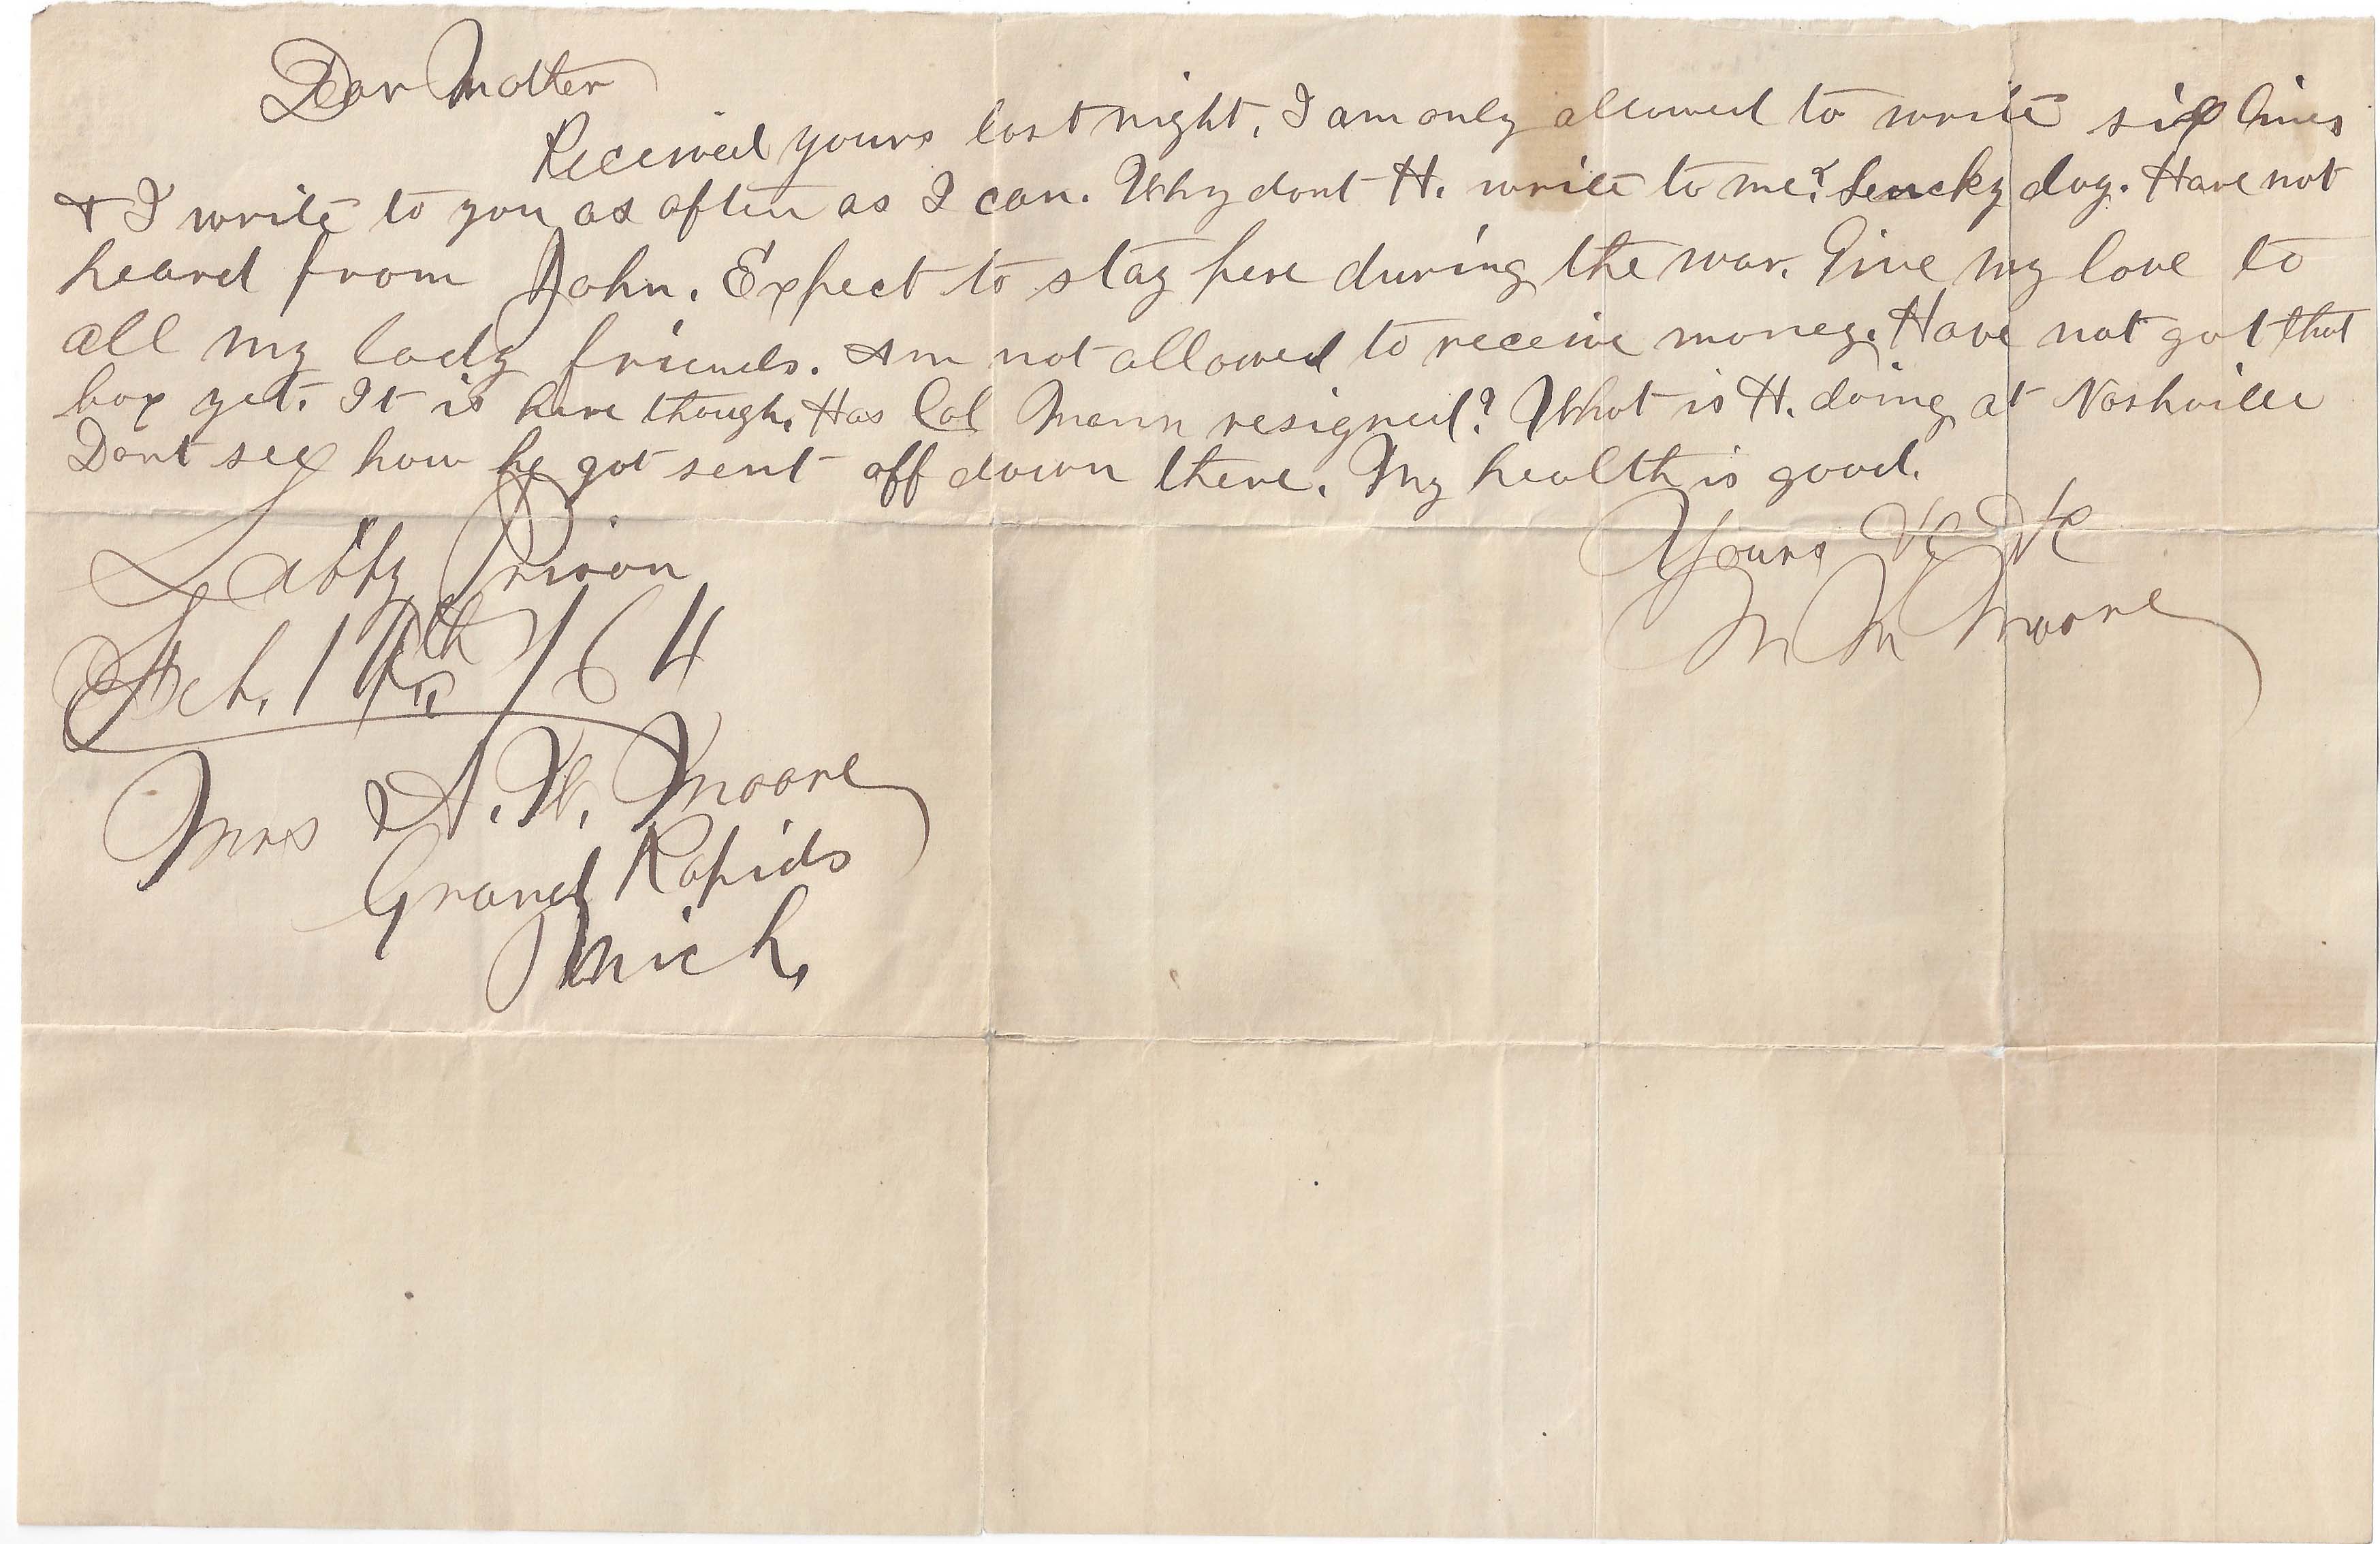 Dear Mother
Received yours last night, I am only allowed to write six lines
& I write to you as often as I can. Why dont H. write to me? Lucky dog. Have not
heard from John. Expect to stay here during the war. Give my love to
all my lady friends. Am not allowed to receive money. Have not got that
box yet. It is here though. Has Col Mann resigned? What is H. doing at Nashville
Dont see how he got sent off down there. My health is good.
Yours &c &c
M M Moore
Libby Prison
Feb. 1 th /64
Mrs A. W. Moore
Grand Rapids
Mich.